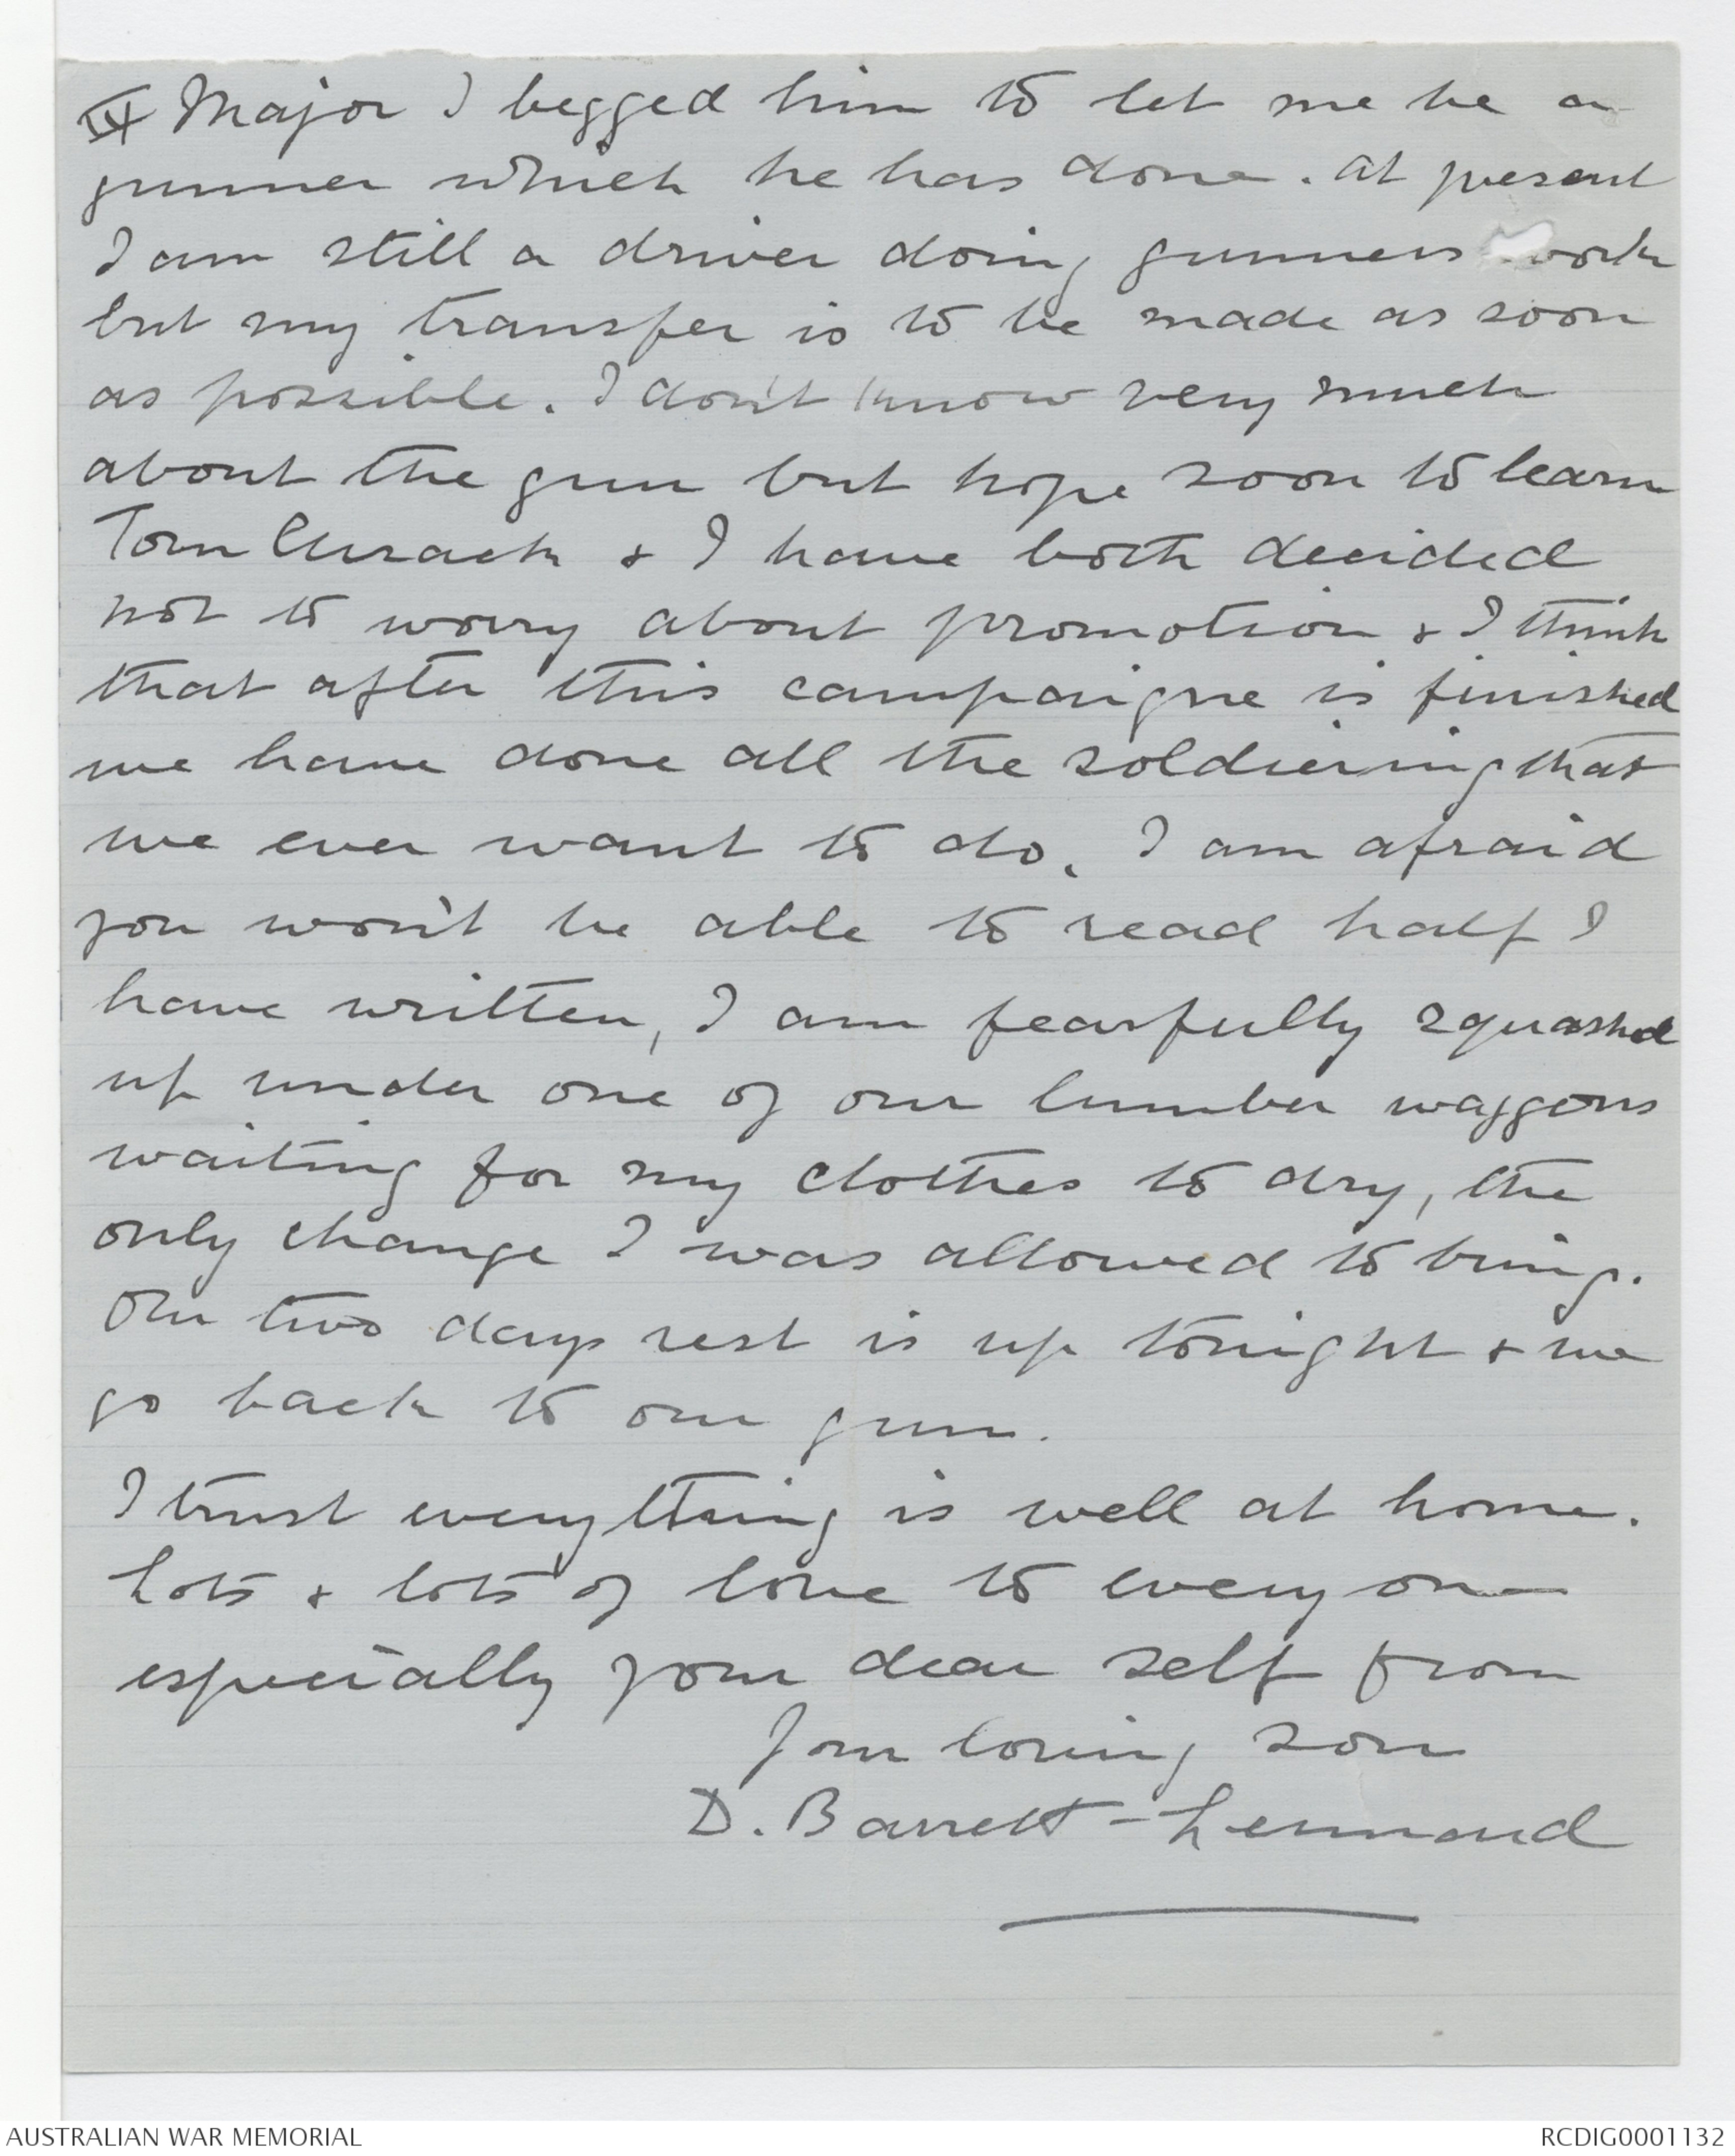 IX Major I begged him to let me be a
gunner which he has done. At present
I am still a driver doing gunners work
but my transfer is to be made as soon
as possible. I don't know very much
about the gun but hope soon to learn
Tom & I have both decided
not to worry about promotion & I think
that after this campaigne is finished
we have done all the soldiering that
we ever want to do. I am afraid
you won't be able to read half I
have written, I am fearfully squashed
up under one of our lumber waggons
waiting for my clothes to dry, the
only change I was allowed to bring.
Our two days rest is up tonight & we
go back to our gun.
I trust everything is well at home.
Lots & lots of love to every one
especially your dear self from
Your loving son
D. Barrett-Lennard
AUSTRALIAN WAR MEMORIAL
RCDIG0001132